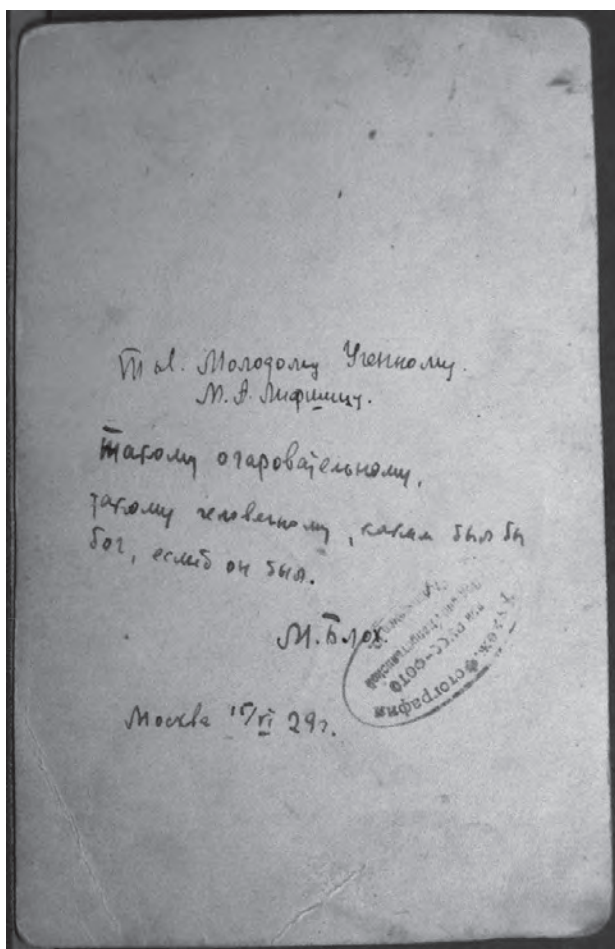 Тов. Молодому Ученному.
М. А. Лифшицу.
Такому очаровательному,
такому человечному, каким был бы
бог, еслиб он был.
М. Блох.
Москва 15/VI 29г.
Худож. Фотография
РУСС-ФОТО